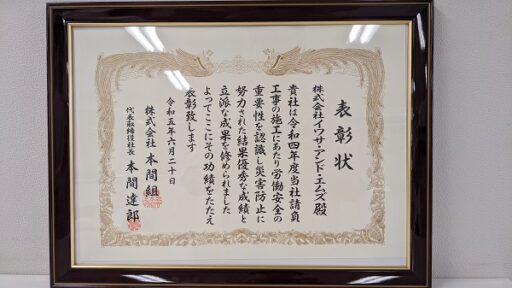 表彰状
株式会社イワサ・アンド・エムズ殿
貴社は令和四年度当社請負
工事の施工にあたり労働安全の
重要性を認識し災害防止に
努力された結果優秀な成績と
立派な成果を修められました
よってここにその功績をたたえ
表彰致します
令和五年六月二十日
株式会社 本間組
代表取締役社長 本間達郎